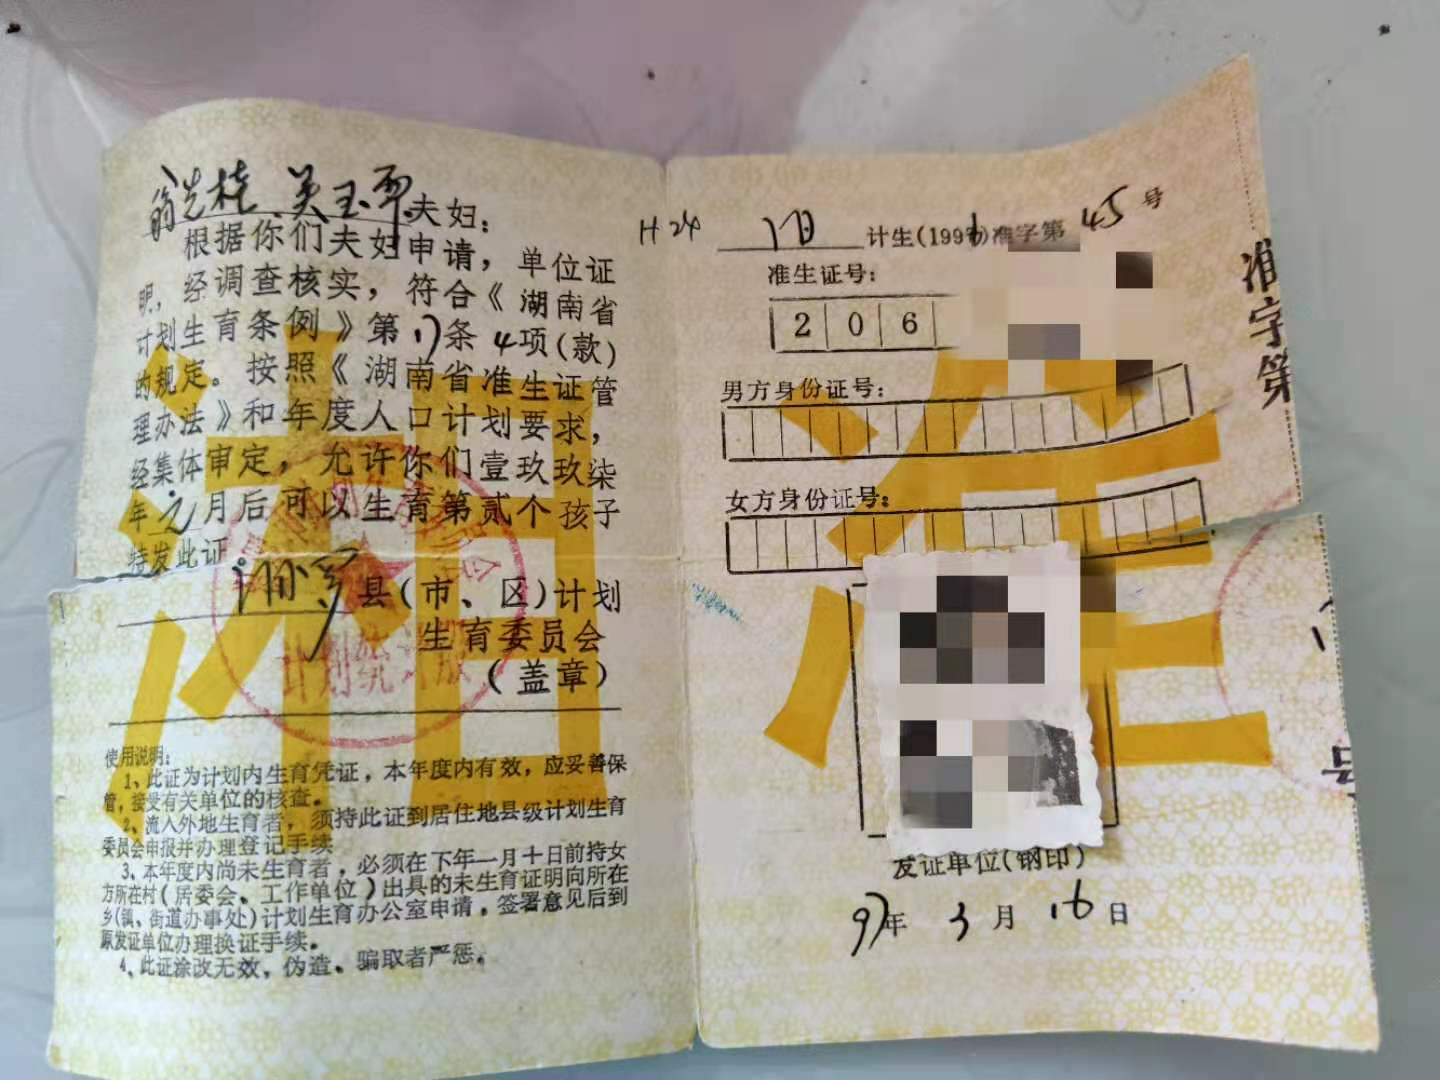 夫妇：
根据你们夫妇申请，单位证
明，经调查核实，符合《湖南省
计划生育条例》第17条4项(款)
的规定。按照《湖南省准生证管
理办法》和年度人口计划要求，
经集体审定，允许你们壹玖玖柒
年元月后可以生育第贰个孩子
特发此证
汨罗县(市、区)计划
生育委员会
(盖章)
使用说明：
1、此证为计划内生育凭证，本年度内有效，应妥善保
管，接受有关单位的核查。
2、流入外地生育者，须持此证到居住地县级计划生育
委员会申报并办理登记手续
3、本年度内尚未生育者，必须在下年一月十日前持女
方所在村(居委会、工作单位)出具的未生育证明向所在
乡(镇、街道办事处)计划生育办公室申请，签署意见后到
原发证单位办理换证手续。
4、此证涂改无效，伪造、骗取者严惩。
湘
H24
汨计生(199)准字第45号
准生证号：
206
男方身份证号：
女方身份证号：
准
发证单位(钢印)
97年3月16日
准字第
号
计划统计股